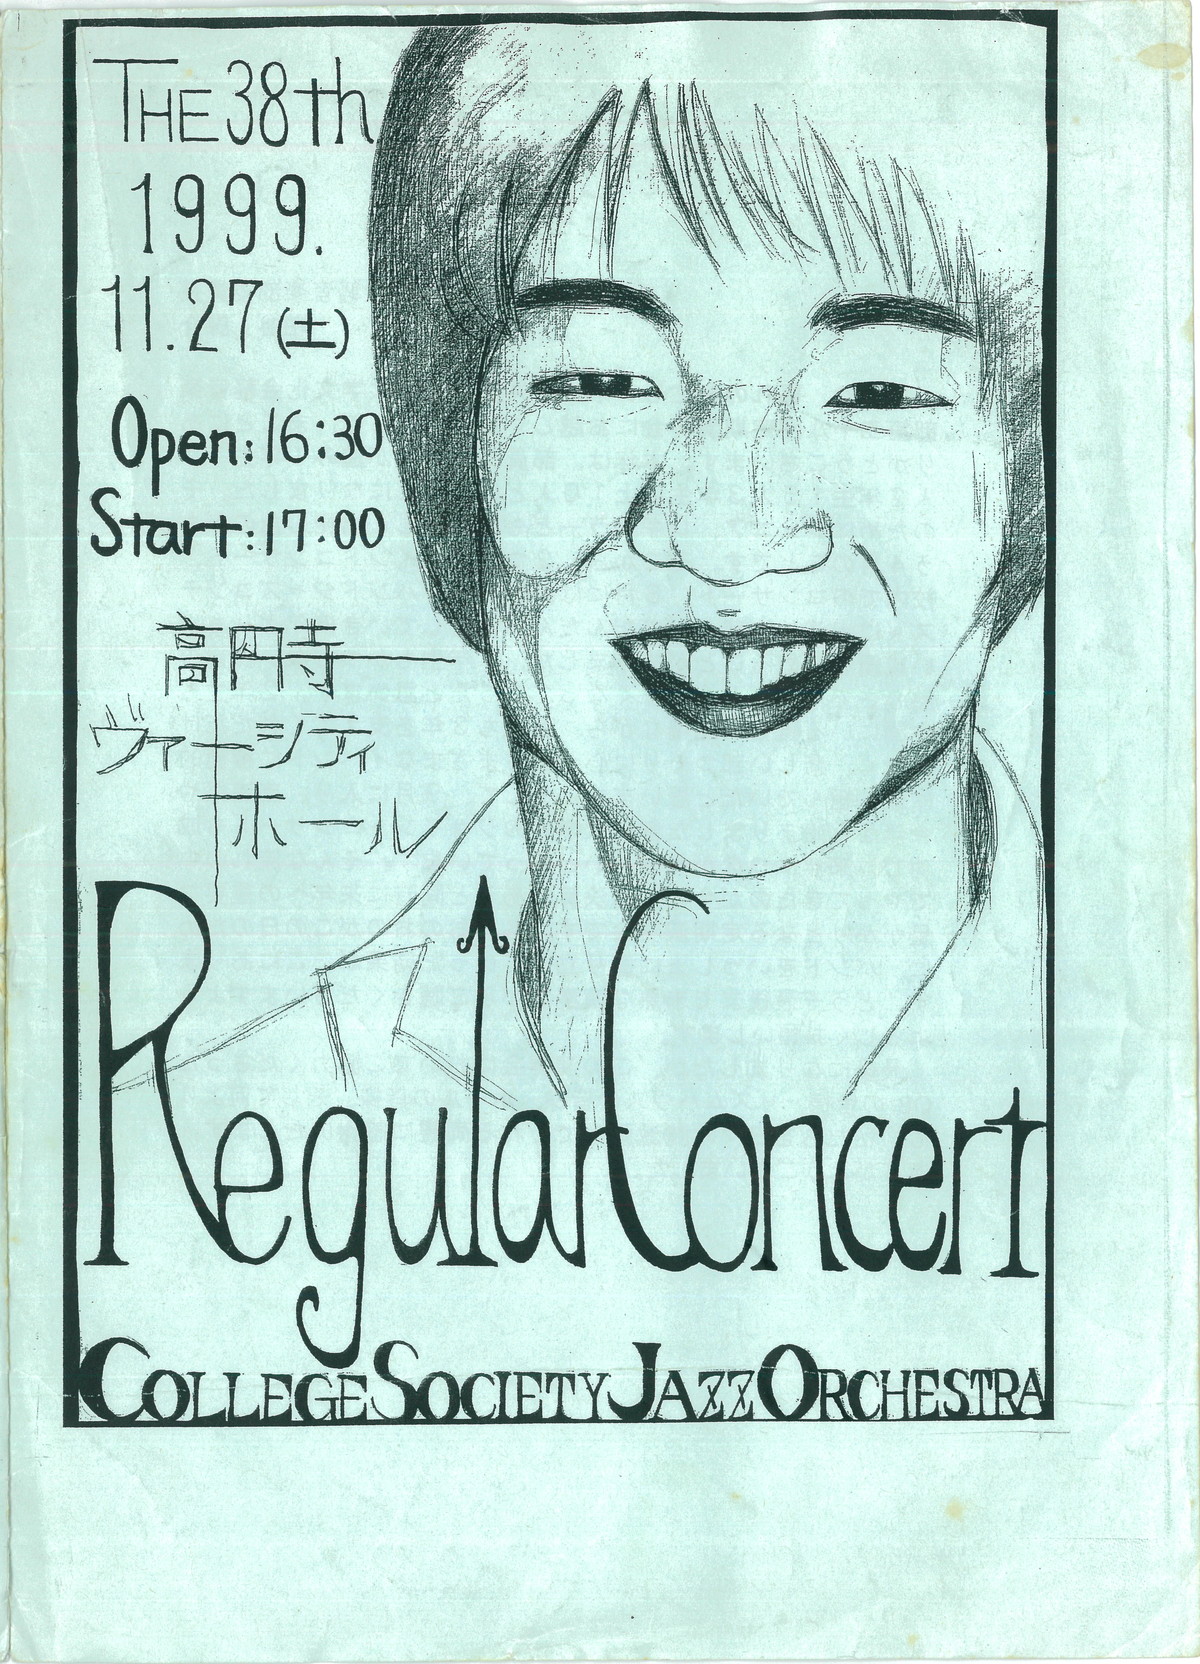 THE 38th
1999.
11.27(土)
Open:16:30
Start:17:00
高円寺
ヴァーシティ
ホール
Regular Concert
COLLEGE SOCIETY JAZZ ORCHESTRA